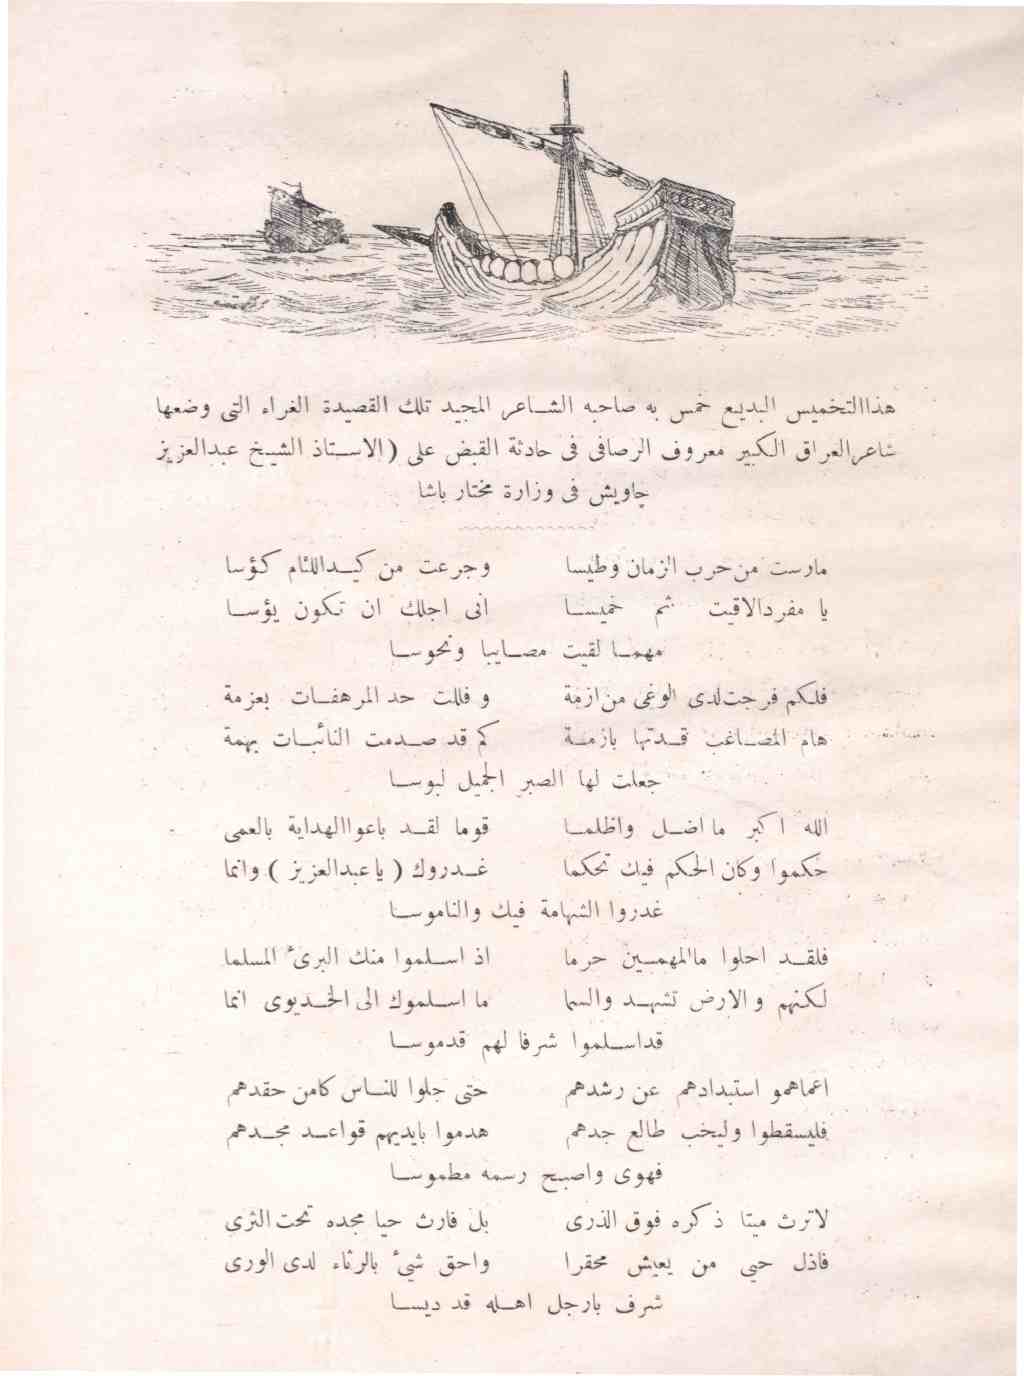 هذاالتخميس البديع خمس به صاحبه الشاعر المجيد تلك القصيدة الغراء التى وضعها
شاعرالعراق الكبير معروف الرصافى فى حادثة القبض على (الاستاذ الشيخ عبدالعزيز
چاويش فى وزارة مختار باشا
مارست من حرب الزمان وطيسا وجرعت من كيداللئام كؤسا
يا مفردالاقيت ثم خميسا انى اجلك ان تكون يؤسا
مهما لقيت مصايبا ونحوسا
فلكم فرجت لدى الوغى من ازمة و فللت حد المرهفات بعزمة
هام المصاعب قدتها بازمة كم قد صدمت النائبات بهمة
جعلت لها الصبر الجميل لبوسا
الله اكبر ما اضل واظلما قوما لقد باعواالهداية بالعمى
حكموا وكان الحكم فيك تحكما غدروك ( يا عبدالعزيز ) وانما
غدروا الشهامة فيك والناموسا
فلقد احلوا ماالمهمين حرما اذ اسلموا منك البرئ المسلما
لكنهم والارض تشهد والسما ما اسلموك الى الخديوى انما
قداسلموا شرفا لهم قدموسا
اعماهمو استبدادهم عن رشدهم حتى جلوا للناس كامن حقدهم
فليسقطوا وليخب طالع جدهم هدموا بايديهم قواعد مجدهم
فهوى واصبح رسمه مطموسا
لاترث ميتا ذكره فوق الذرى بل فارث حيا مجده تحت الثرى
فاذل حى من يعيش محقرا واحق شئ بالرثاء لدى الورى
شرف بارجل اهله قد ديسا